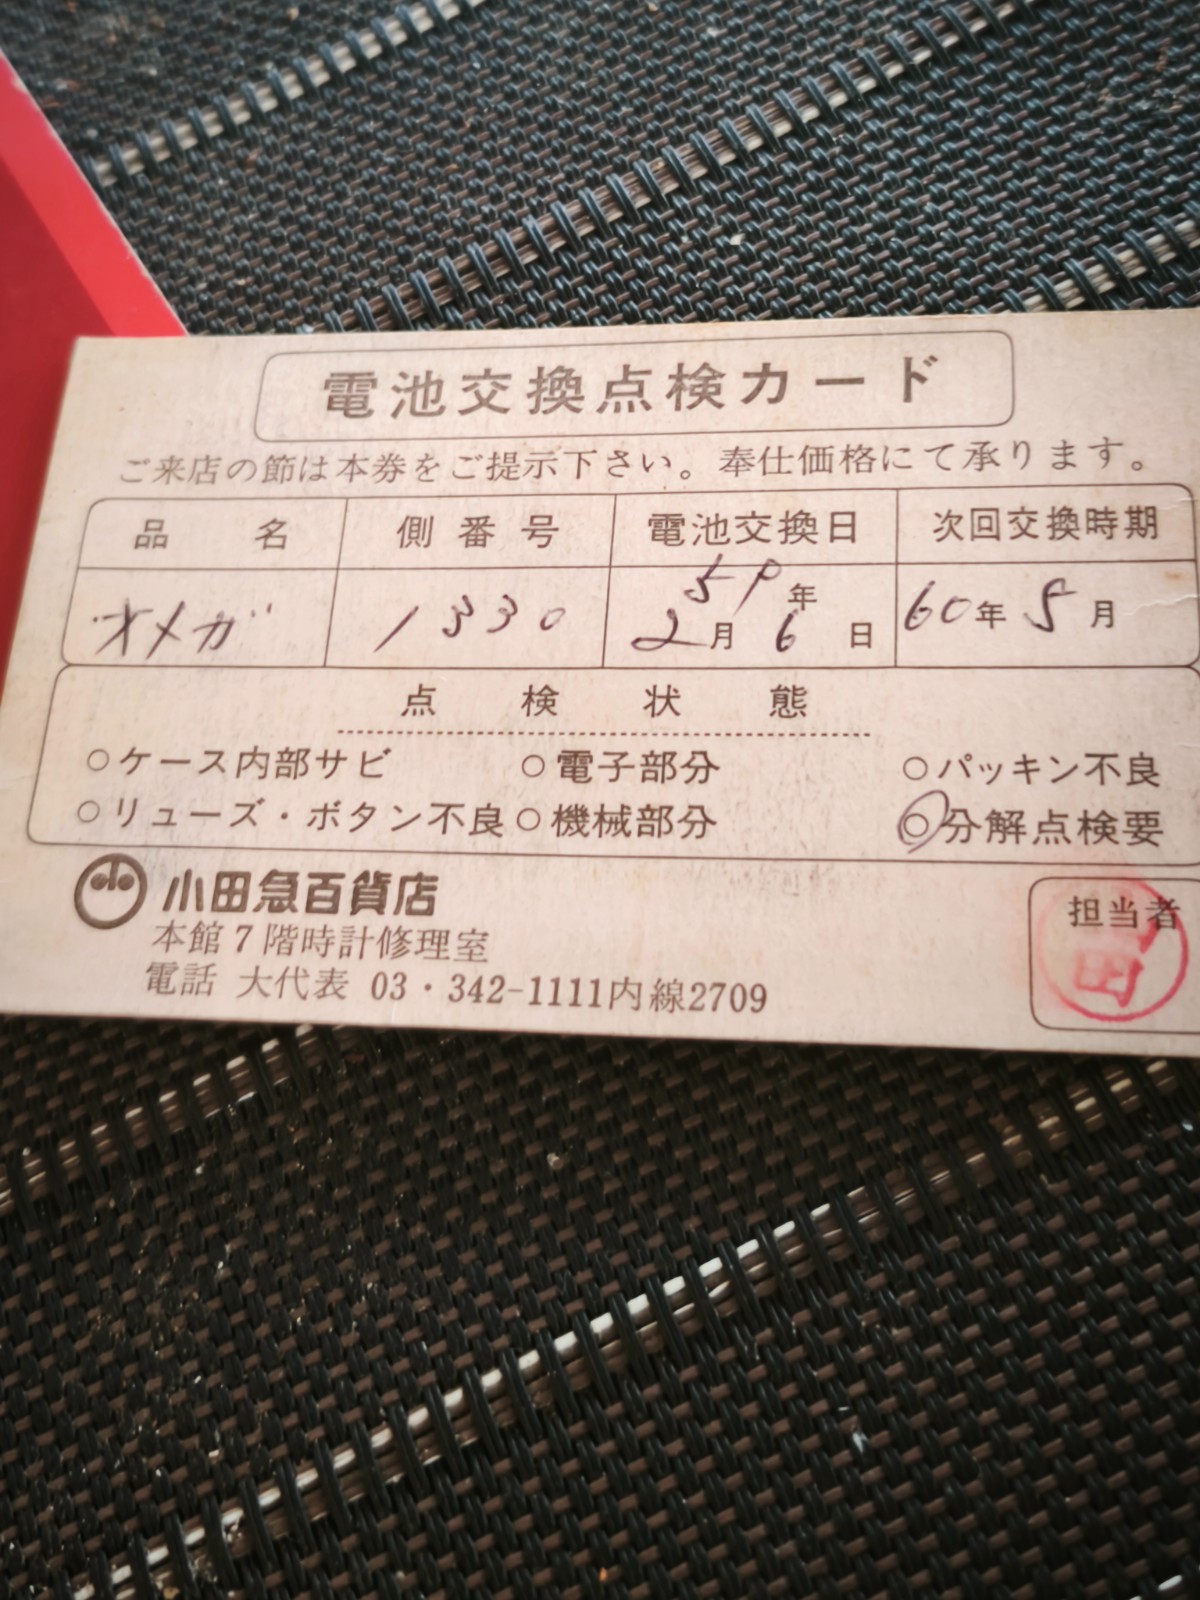 電池交換点検カード
ご来店の節は本券をご提示下さい。奉仕価格にて承ります。
品名 側番号 電池交換日 次回交換時期
オメガ 1330 59年2月6日 60年5月
点検状態
○ケース内部サビ ○電子部分 ○パッキン不良
○リューズ・ボタン不良 ○機械部分 ○分解点検要
小田急百貨店
本館7階時計修理室
電話 大代表 03・342-1111内線2709
担当者